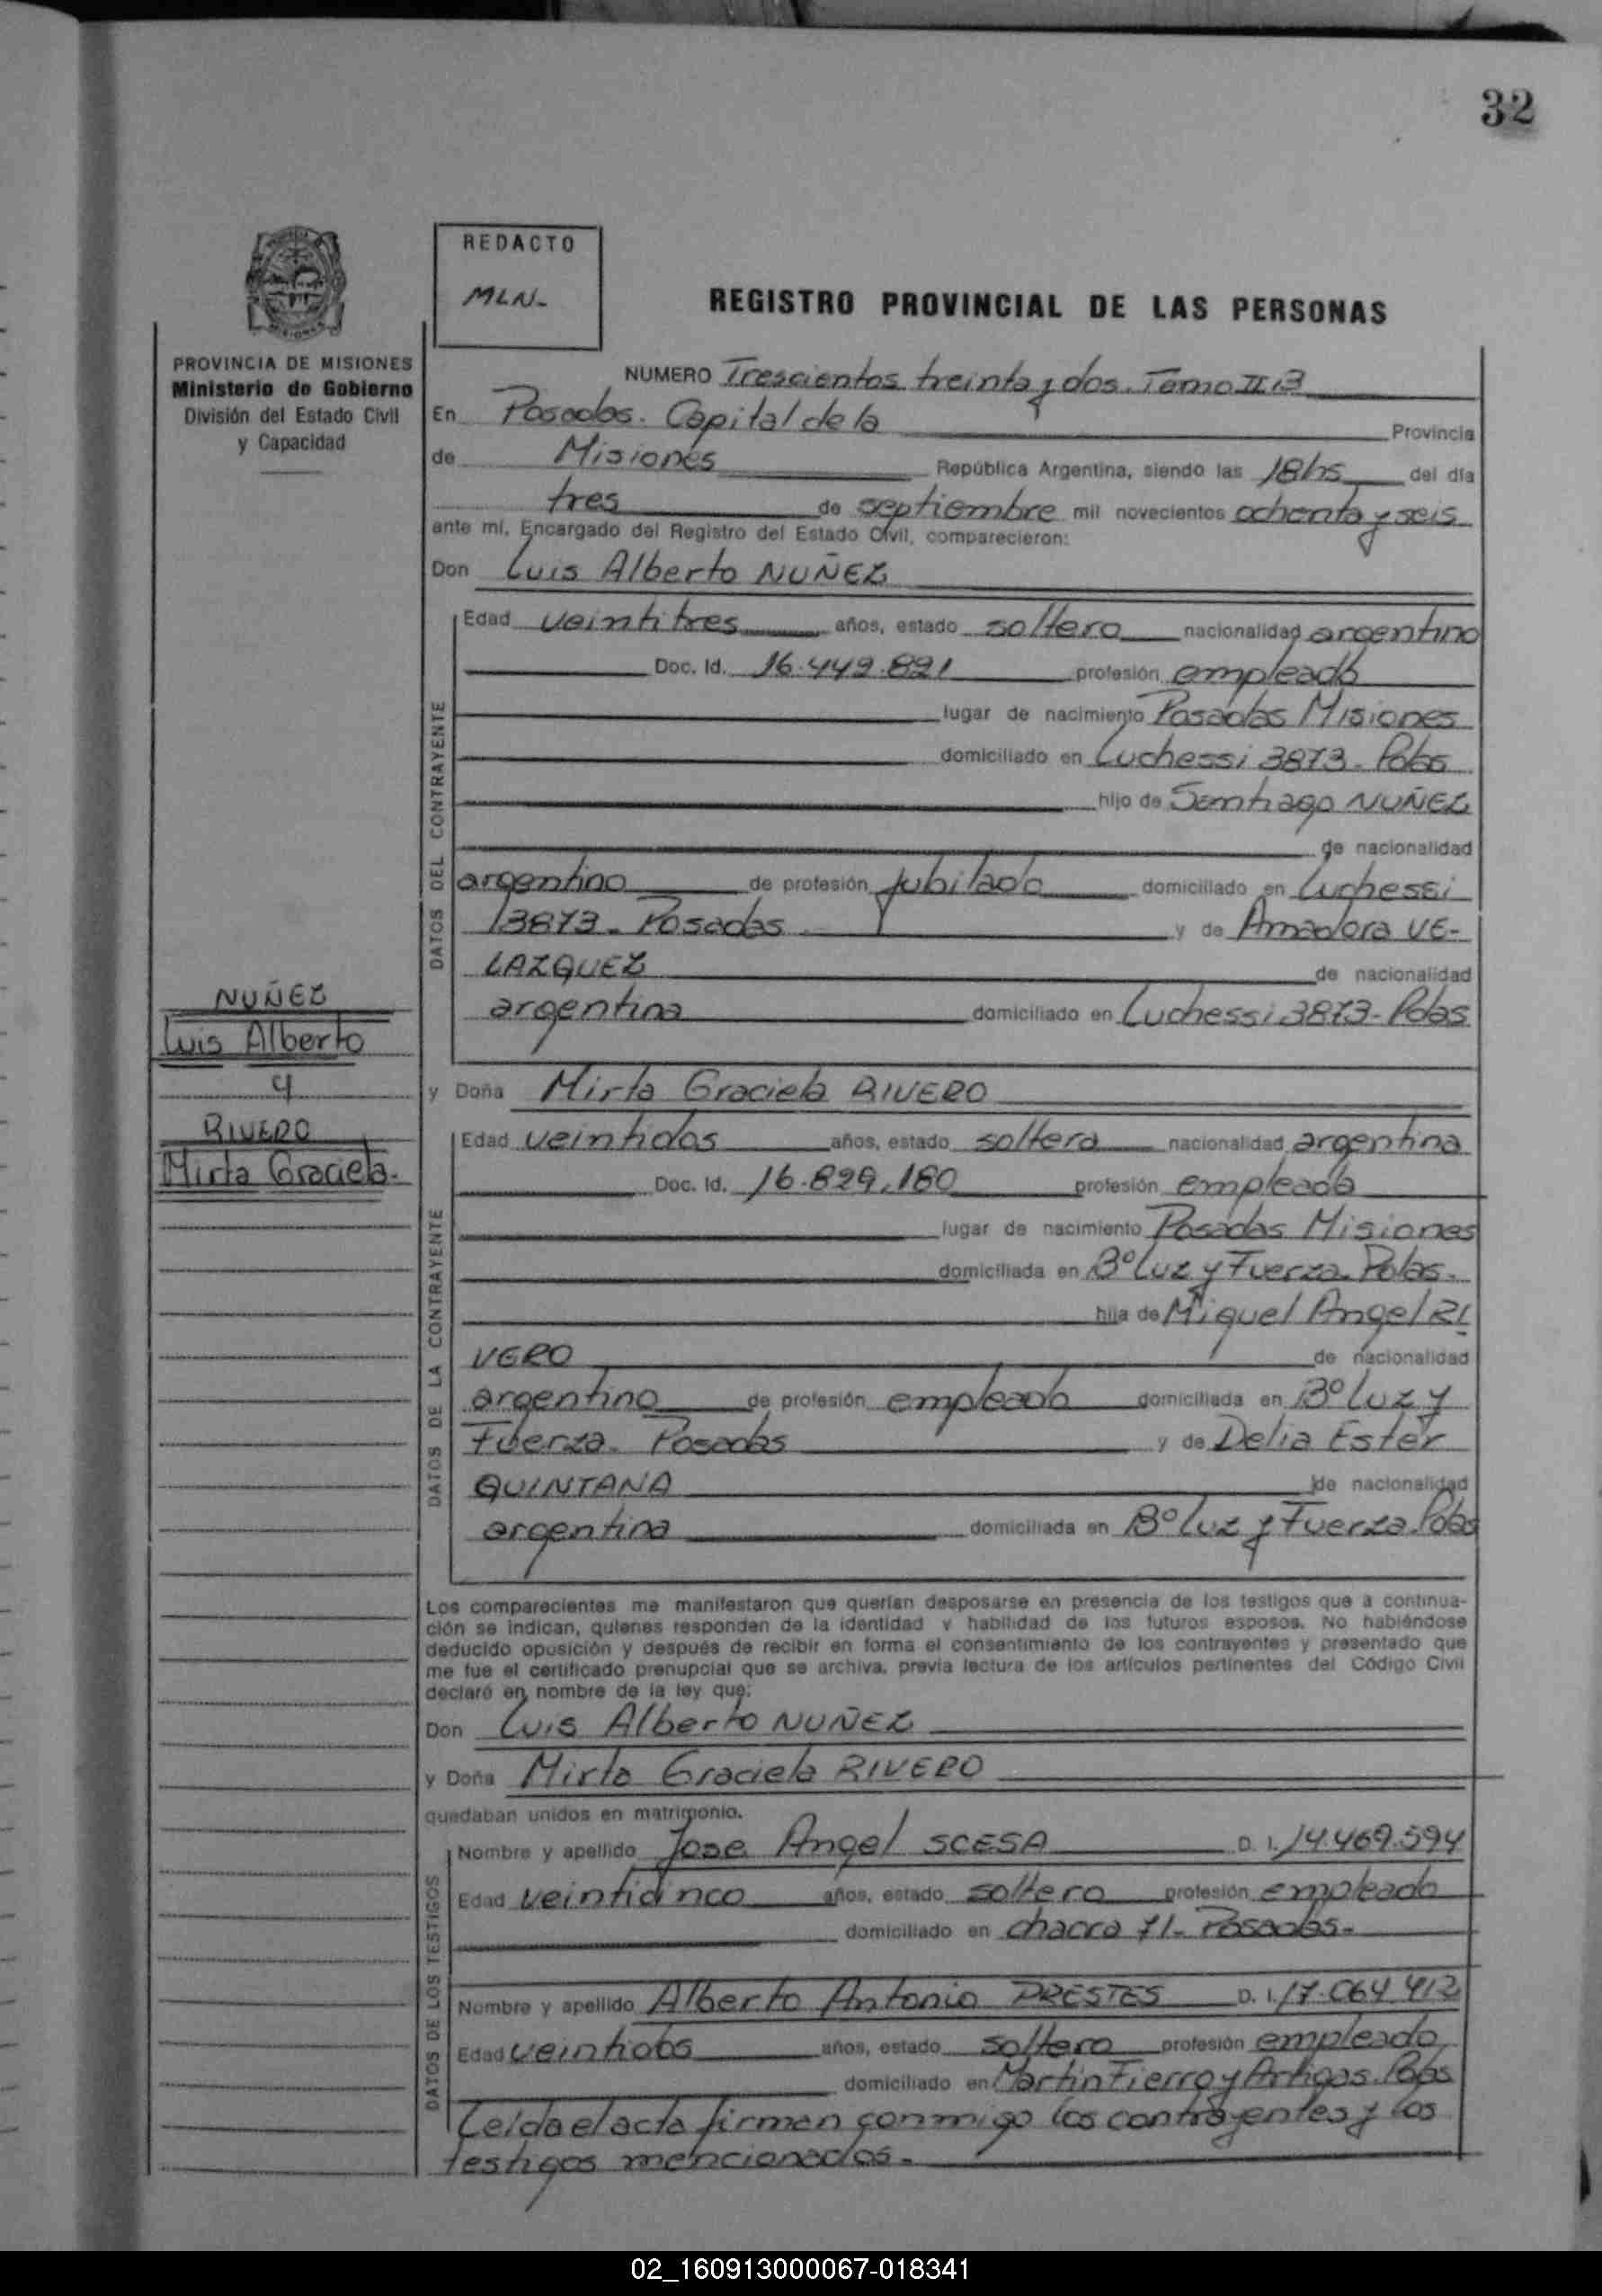 32
REDACTO
MLN-
REGISTRO PROVINCIAL DE LAS PERSONAS
PROVINCIA DE MISIONES
Ministerio de Gobierno
División del Estado Civil
y Capacidad
NUMERO Trescientos treinta y dos. Tomo II B
En Posadas. Capital de la Provincia
de Misiones República Argentina, siendo las 18hs del día
tres de septiembre mil novecientos ochenta y seis
ante mí, Encargado del Registro del Estado Civil, comparecieron:
Don Luis Alberto NUÑEZ
DATOS DEL CONTRAYENTE
Edad veintitres años, estado soltero nacionalidad argentino
Doc. Id. 16.449.891 profesión empleado
lugar de nacimiento Posadas Misiones
domiciliado en Luchessi 3873- Pdas
hijo de Santiago NUÑEZ
de nacionalidad
argentino de profesión jubilado domiciliado en Luchessi
3873- Posadas y de Amadora VE-
LAZQUEZ de nacionalidad
argentina domiciliado en Luchessi 3873- Pdas
NUÑEZ
Luis Alberto
y
RIVERO
Mirta Graciela.
y Doña Mirta Graciela RIVERO
DATOS DE LA CONTRAYENTE
Edad veintidos años, estado soltera nacionalidad argentina
Doc. Id. 16.829.180 profesión empleada
lugar de nacimiento Posadas Misiones
domiciliada en Bº Luz y Fuerza. Pdas.
hija de Miguel Angel RI
VERO de nacionalidad
argentino de profesión empleado domiciliada en Bº Luz y
Fuerza. Posadas y de Delia Ester
QUINTANA de nacionalidad
argentina domiciliada en Bº Luz y Fuerza. Pdas
Los comparecientes me manifestaron que querían desposarse en presencia de los testigos que a continua-
ción se indican, quienes responden de la identidad y habilidad de los futuros esposos. No habiéndose
deducido oposición y después de recibir en forma el consentimiento de los contrayentes y presentado que
me fue el certificado prenupcial que se archiva, previa lectura de los artículos pertinentes del Código Civil
declaré en nombre de la ley que:
Don Luis Alberto NUÑEZ
y Doña Mirta Graciela RIVERO
quedaban unidos en matrimonio.
DATOS DE LOS TESTIGOS
Nombre y apellido Jose Angel SCESA D. I. 14.469.594
Edad veinticinco años, estado soltero profesión empleado
domiciliado en chacra 71- Posadas-
Nombre y apellido Alberto Antonio PRESTES D. I. 17.064.412
Edad veintidos años, estado soltero profesión empleado
domiciliado en Martin Fierro y Artigas. Pdas
Leida el acta firman conmigo los contrayentes y los
testigos mencionados.
02_160913000067-018341